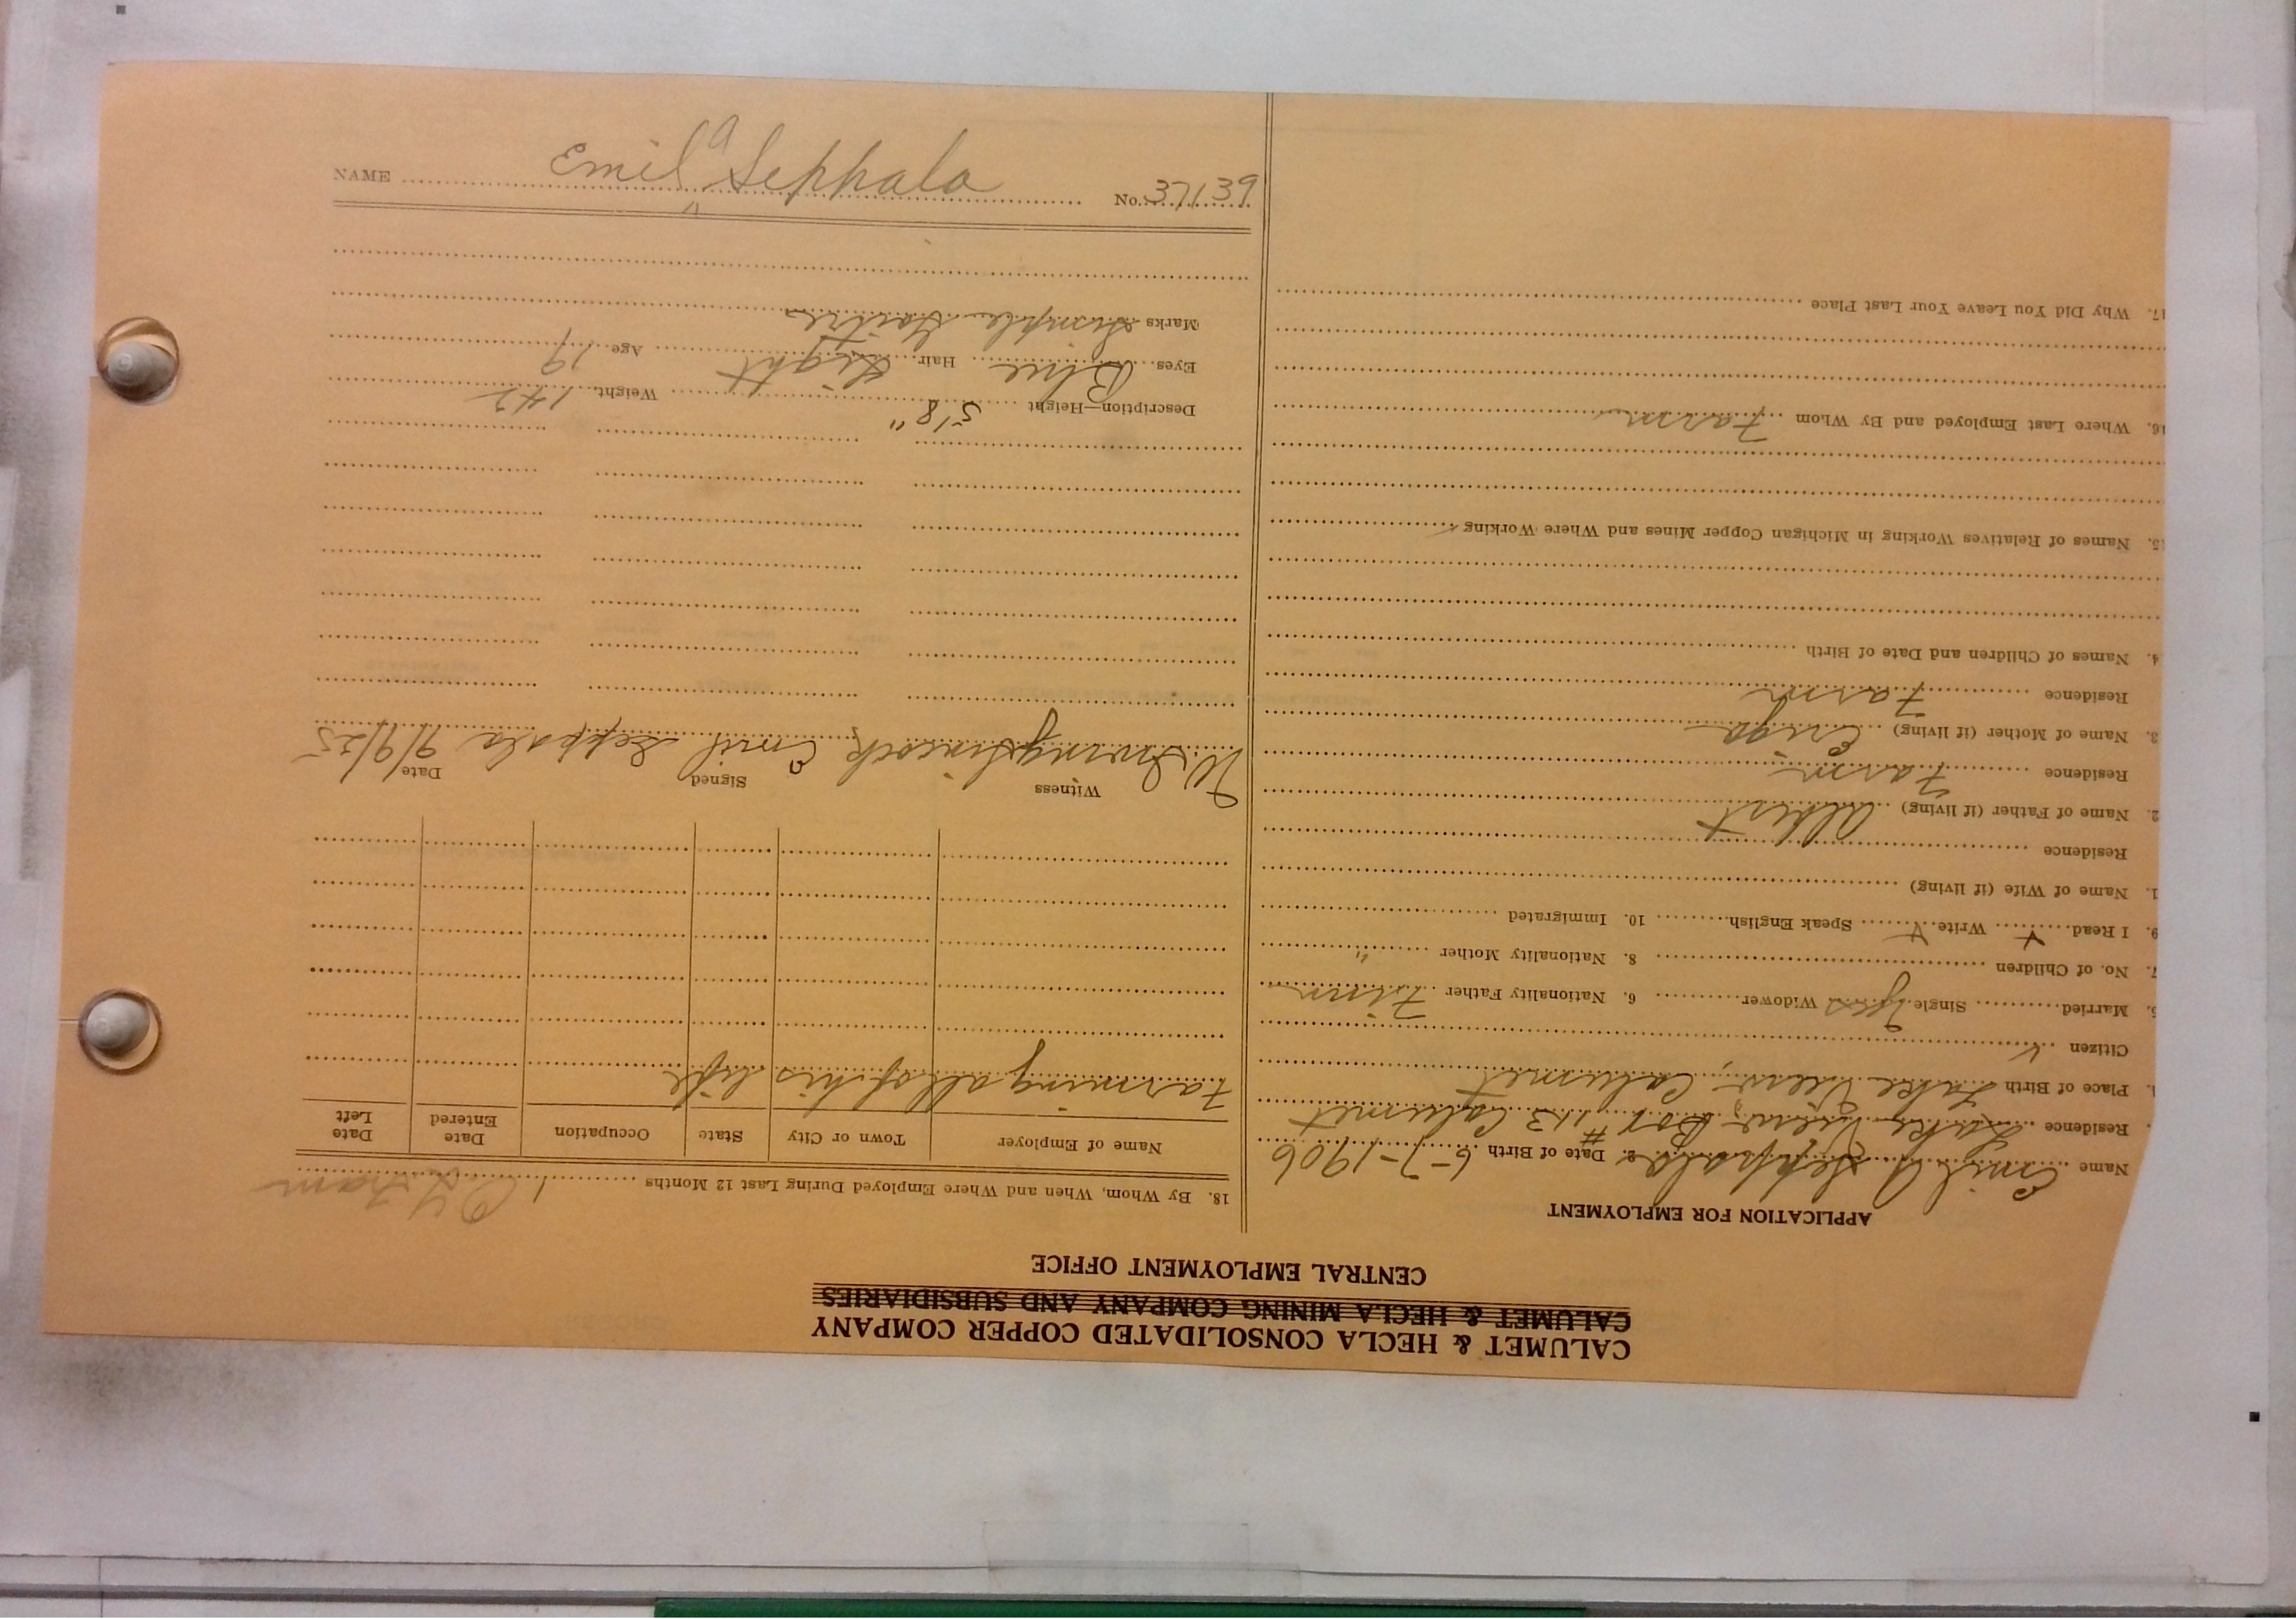 CALUMET & HECLA CONSOLIDATED COPPER COMPANY
CALUMET & HECLA MINING COMPANY AND SUBSIDIARIES
CENTRAL EMPLOYMENT OFFICE
APPLICATION FOR EMPLOYMENT
Name Emil A Seppala 2. Date of Birth 6-7-1906
Residence Lake View Box #113 Calumet
Place of Birth Lake View, Calumet
Citizen ✓
5. Married Single Yes Widower 6. Nationality Father Finn
7. No. of Children 8. Nationality Mother "
9. I Read ✓ Write ✓ Speak English ✓ 10. Immigrated
1. Name of Wife (if living)
Residence
2. Name of Father (if living) Albert
Residence Farm
3. Name of Mother (if living)
Residence Farm
4. Names of Children and Date of Birth
15. Names of Relatives Working in Michigan Copper Mines and Where Working
16. Where Last Employed and By Whom Farm
17. Why Did You Leave Your Last Place
18. By Whom, When and Where Employed During Last 12 Months
Name of Employer Town or City State Occupation Date Entered Date Left
Farming all of his life
Witness Signed Date
Emil Seppala 9/9/25
Description—Height 5'8" Weight 142
Eyes Blue Hair Light Age 19
Marks Simple Goitre
NAME Emil A Seppala No. 37139